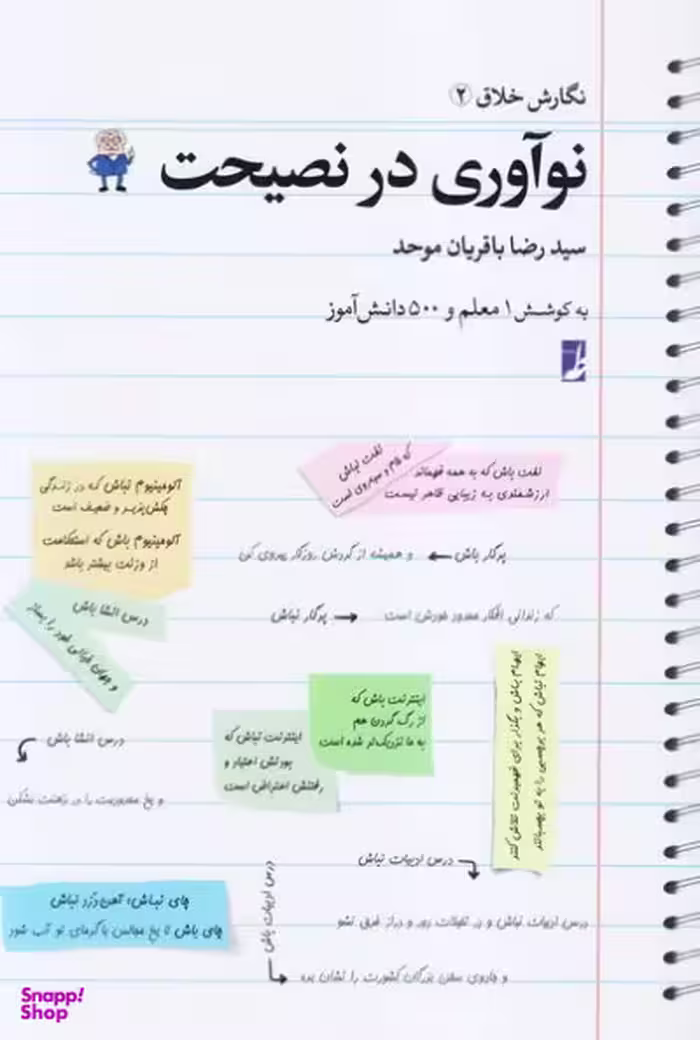 نگارش خلاق ۲
نوآوری در نصیحت
سید رضا باقریان موحد
به کوشش ۱ معلم و ۵۰۰ دانش‌آموز
نفت نباش
که خام و سیه‌روی است
نفت باش که به همه فهماند
ارزشمندی به زیبایی ظاهر نیست
آلومینیوم نباش که در زندگی
چکش‌پذیر و ضعیف است
آلومینیوم باش که استقامت
از وزنت بیشتر باشد
پرگار باش ← و همیشه از گردش روزگار پیروی کن
که زندانی افکار محدود خویش است → پرگار نباش
درس انشا باش
و جهان خیالی خود را بساز
اینترنت باش که
از رگ گردن هم
به ما نزدیک‌تر شده است
اینترنت نباش که
بودنش اعتیاد و
رفتنش اعتراض است
ابهام باش و بگذار برای فهمیدنت تلاش کنند
ابهام نباش که هر برچسبی را به تو بچسبانند
درس انشا باش
و یخ محدودیت را در ذهنت بشکن
درس ادبیات نباش
درس ادبیات نباش و در تخیلات دور و دراز غرق نشو
درس ادبیات باش
و جادوی سخن بزرگان کشورت را نشان بده
چای نباش؛ آهن‌زُدا نباش
چای باش تا یخ مجالس با گرمای تو آب شود
Snapp!
Shop